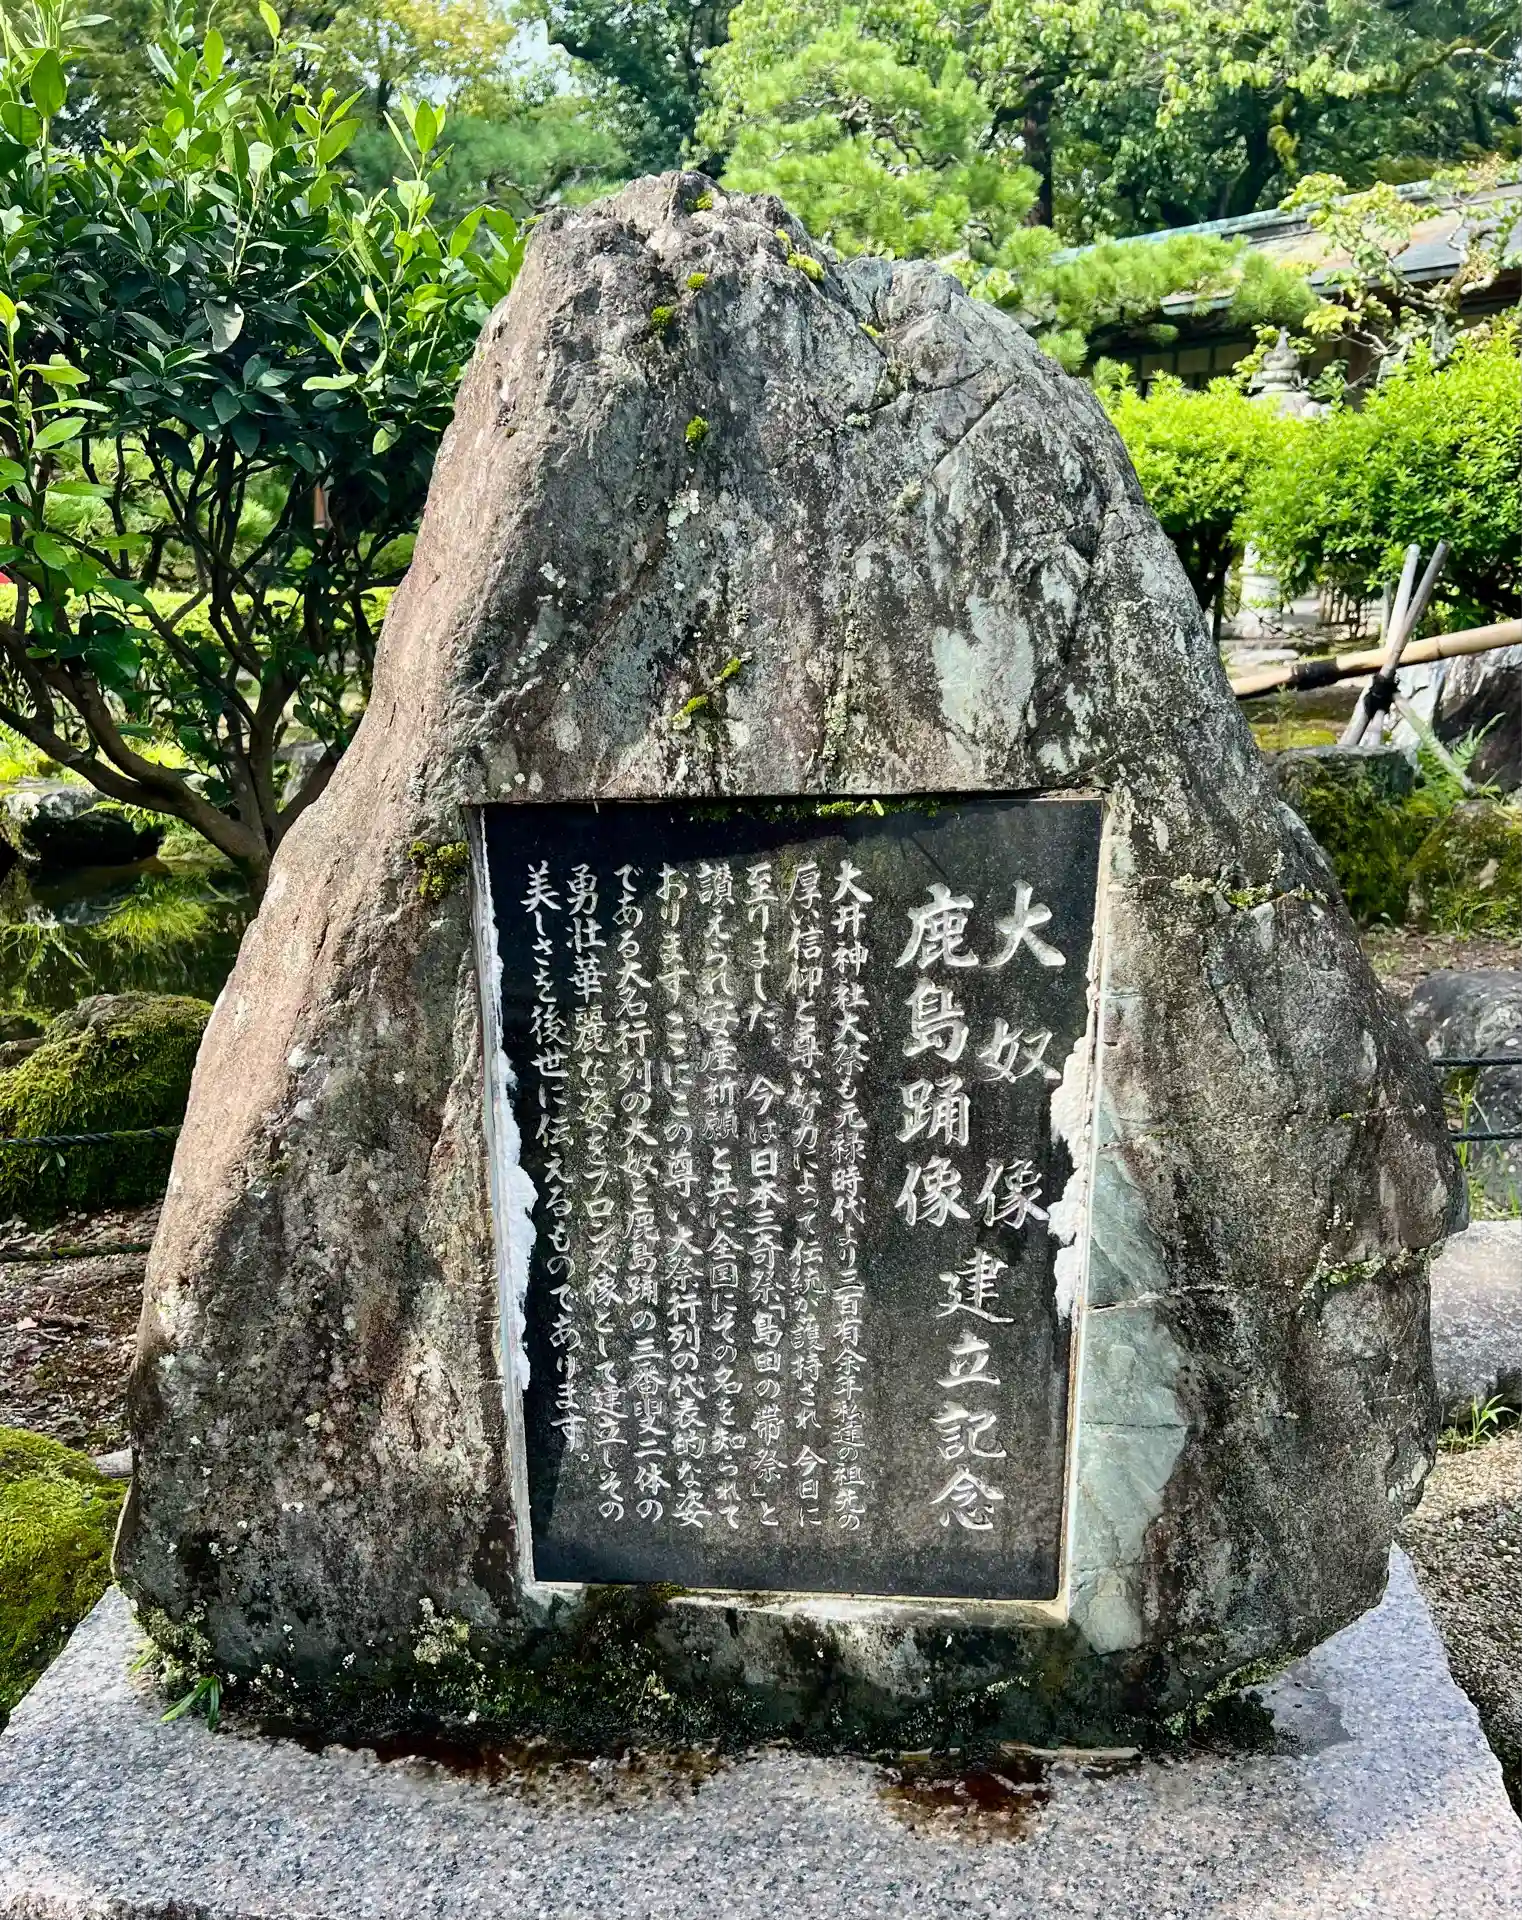 大奴像
鹿島踊像
建立記念
大井神社大祭も元禄時代より三百有余年私達の祖先の
厚い信仰と尊い努力によって伝統が護持され 今日に
至りました。 今は日本三奇祭「島田の帯祭」と
讃えられ安産祈願と共に全国にその名を知られて
おります ここにこの尊い大祭行列の代表的な姿
である大名行列の大奴と鹿島踊の三番叟二体の
勇壮華麗な姿をブロンズ像として建立しその
美しさを後世に伝えるものであります。